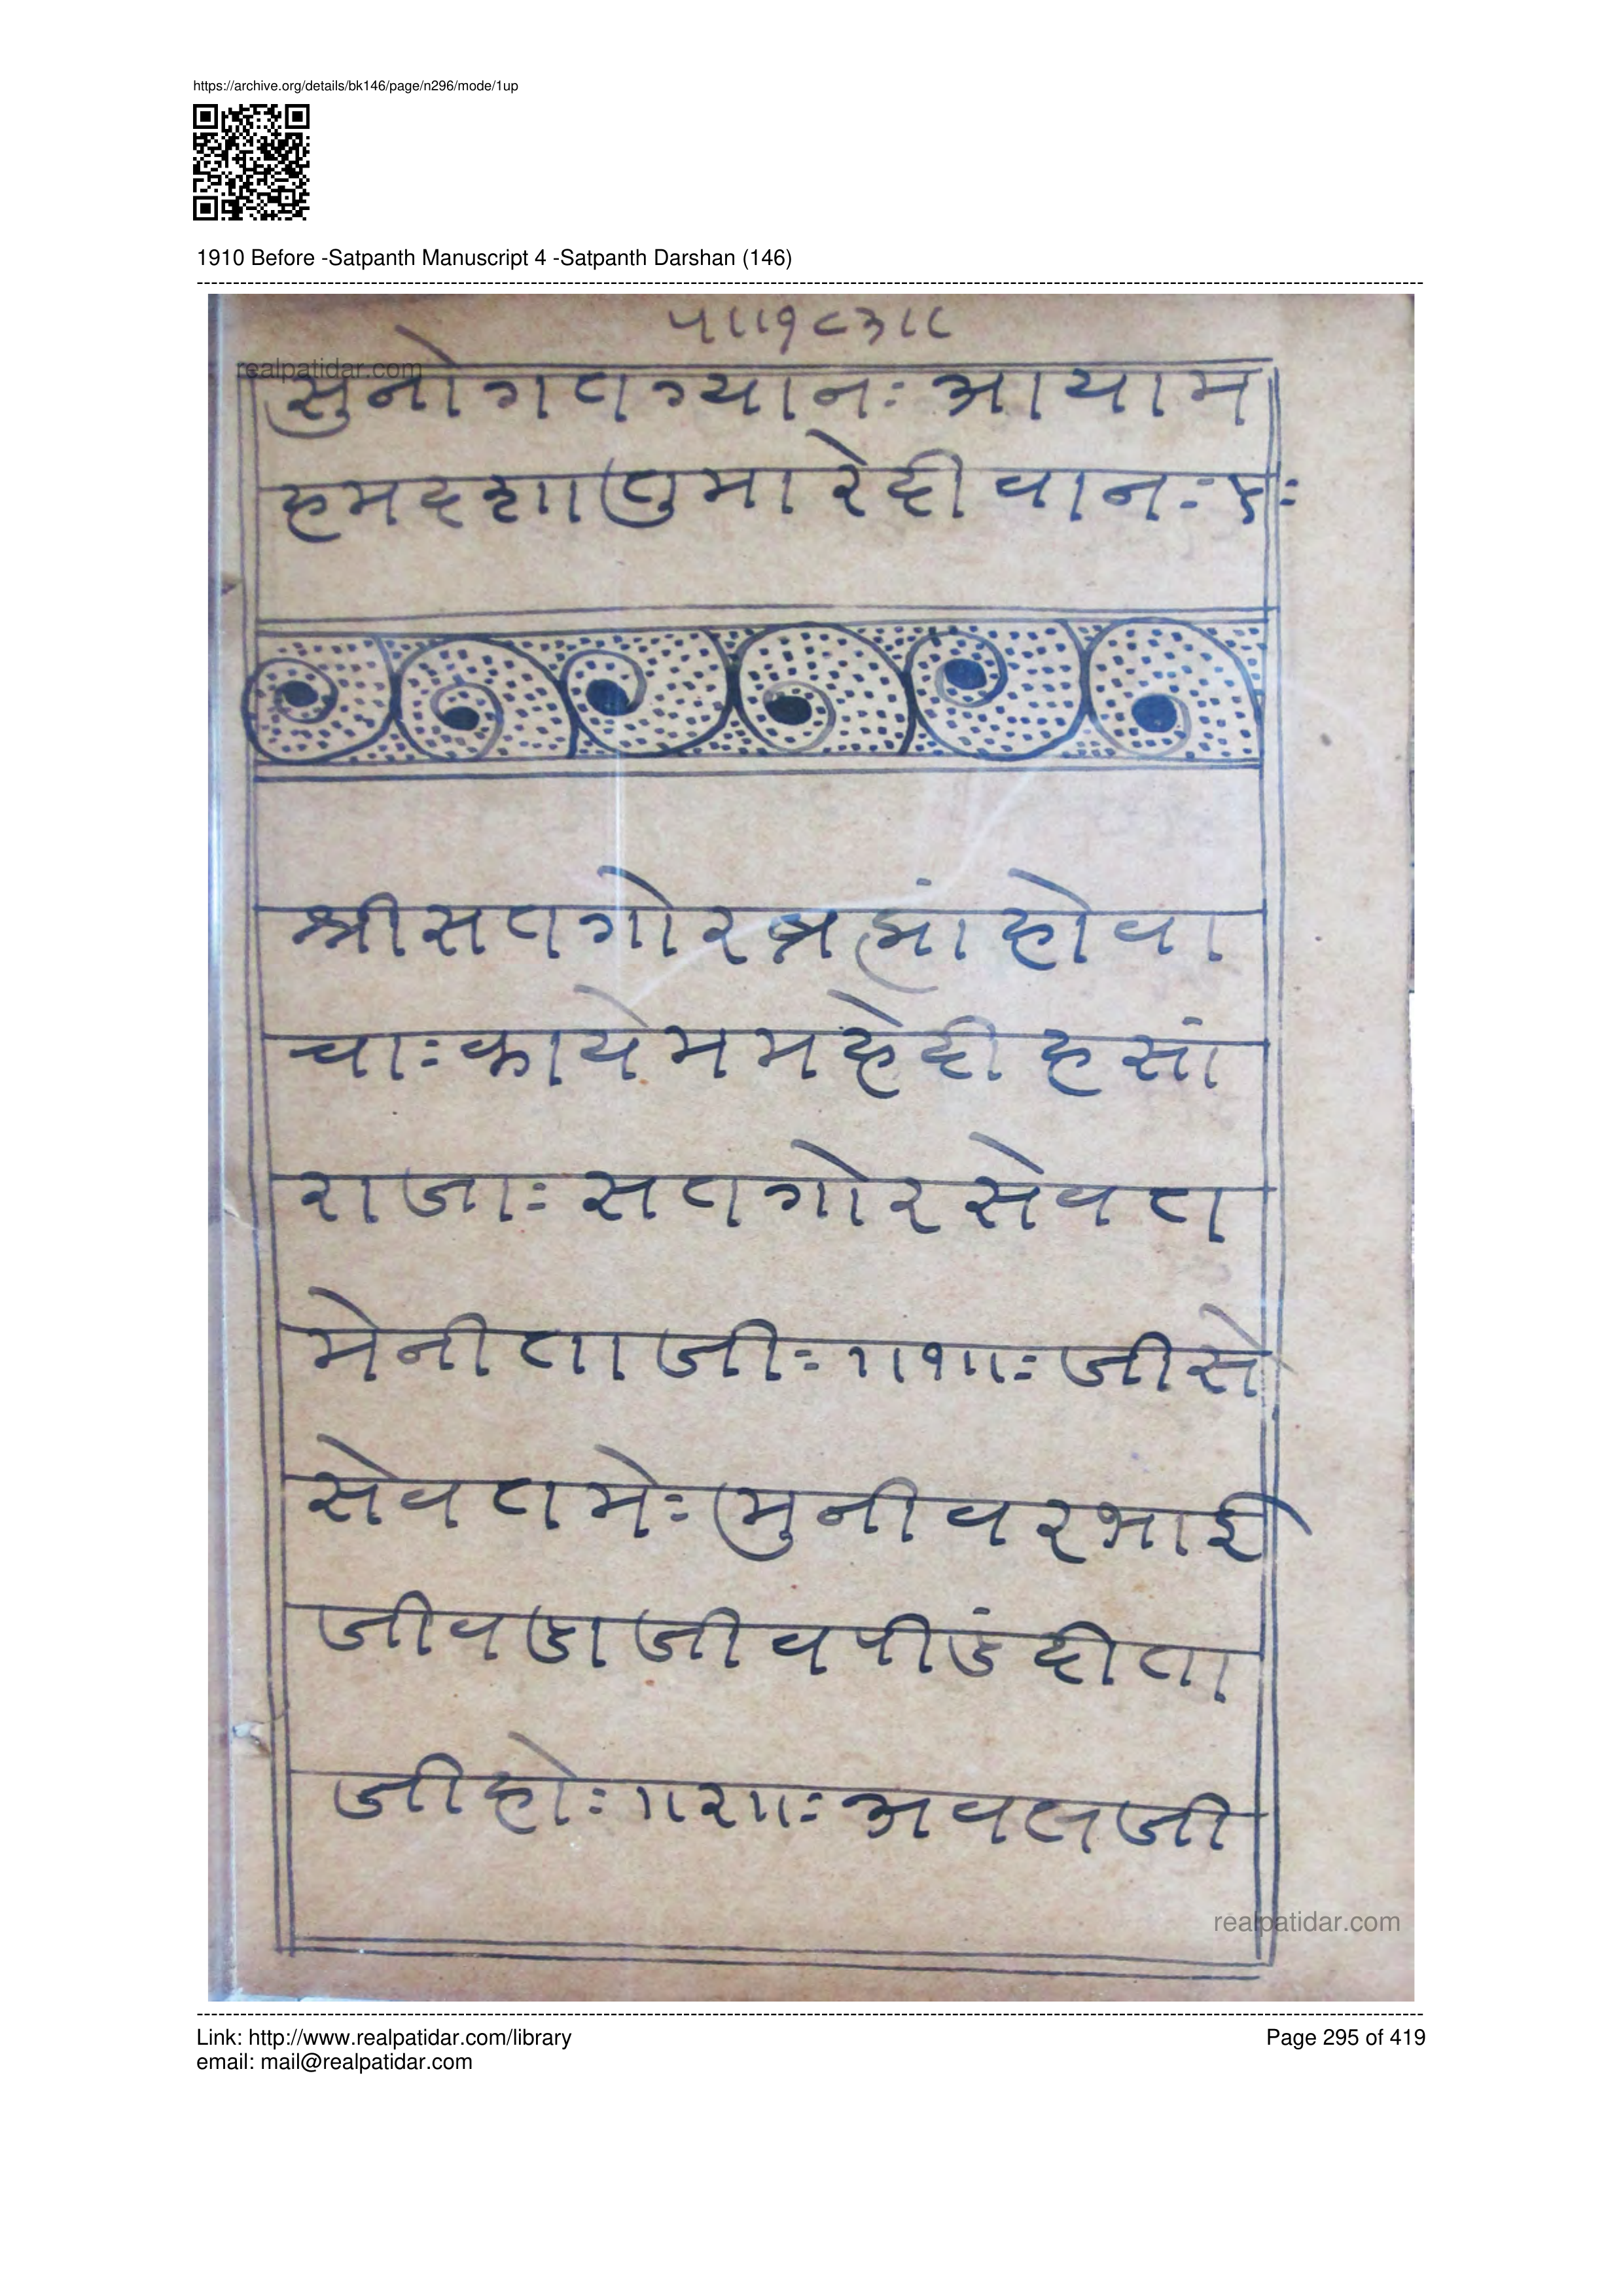 https://archive.org/details/bk146/page/n296/mode/1up
1910 Before -Satpanth Manuscript 4 -Satpanth Darshan (146)
५॥१८३॥
realpatidar.com
सुनोगतग्यानः आयाम
हमदशातुमारेदीवानः ५ः
श्रीसतगोरब्रह्मांहोवा
चाः कायेममहेदीहसां
राजाः सतगोरसेवत
मेनीताजीः ॥१॥ः जीसे
सेवतमेः मुनीवरभाई
जीवडाजीवपींडदीता
जीहोः ॥२॥ः अवलजी
realpatidar.com
Link: http://www.realpatidar.com/library
Page 295 of 419
email: mail@realpatidar.com